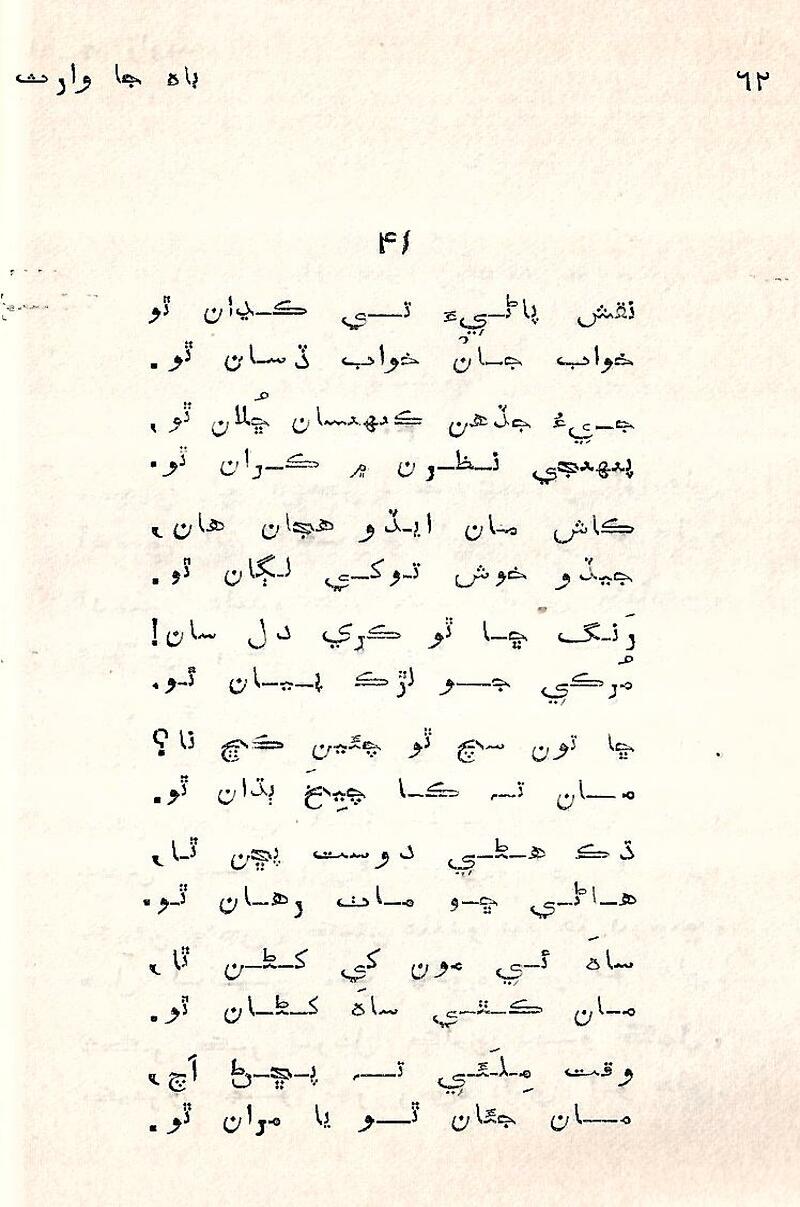 ٦٢
باهه جا وارث
۴۱
نقش پاڻيءَ تي ڪڍان ٿو
خواب جان خواب ڏسان ٿو.
جيءُ جڏهن ڪنهنسان ڇُلان ٿو،
پنهنجي نظرن ۾ ڪران ٿو.
ڪاش مان ايڏو هجان هان،
جيڏو خوش توکي لڳان ٿو.
رَنگ ڇا ٿو ڪري دل سان!
مُرڪي جو لڙڪ پيان ٿو.
ڇا تون سچ ٿو چئين ڪڇ نا؟
مان ته ڪا چيخَ ٻڌان ٿو.
ڌڪ هڻي دوست پڇن ٿا،
هاڻي ڇو مات رهان ٿو.
ساهَ ئي مون کي کڻن ٿا،
مان ڪٿي ساهَ کڻان ٿو.
وقت مِلَئي ته پڇڻ اَچ،
مان جئان ٿو يا مران ٿو.